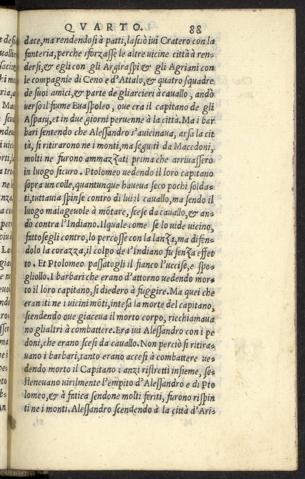 QVARTO. 88
dace, ma rendendosi à patti, lasciò iui Cratero con la
fanteria, perche sforzasse le altre uicine città à ren
dersi, & egli con gli Argiraspi & gli Agriani con
le compagnie di Ceno e d'Attalo, & quatro squadre
de suoi amici, & parte de gli arcieri à cauallo, andò
uerso il fiume Euaspoleo, oue era il capitano de gli
Aspasij, et in due giorni peruenne à la città. Ma i bar
bari sentendo che Alessandro s'auicinaua, arsa la cit
tà, si ritirarono ne i monti, ma seguiti da Macedoni,
molti ne furono ammazzati prima che arriuassero
in luogo sicuro. Ptolomeo uedendo il loro capitano
sopra un colle, quantunque haueua seco pochi soldati
, tuttauia spinse contro di lui il cauallo, ma sendo il
luogo malageuole à montare, scese da cauallo, & an
dò contra l'Indiano. Il quale come se lo uide uicino,
fattosegli contro, lo percosse con la lanza, ma difen
dolo la corazza, il colpo de l'Indiano fu senza effet
to. Et Ptolomeo passatogli il fianco l'uccise, e spo
gliollo. I barbari che erano d'attorno uedendo mor
to il loro capitano, si diedero à fuggire. Ma quei che
eran iti ne i uicini mōti, intesa la morte del capitano,
scendendo oue giaceua il morto corpo, ricchiamaua
no gli altri à combattere. Era iui Alessandro con i pe
doni, che erano scesi da cauallo. Non perciò si ritira
uano i barbari, tanto erano accesi à combattere ue
dendo morto il Capitano: anzi ristretti insieme, so
steneuano uirilmente l'empito d'Alessandro e di Pto
lomeo, & à fatica sendone molti feriti, furono rispin
ti ne i monti. Alessandro scendendo à la città d'Aris